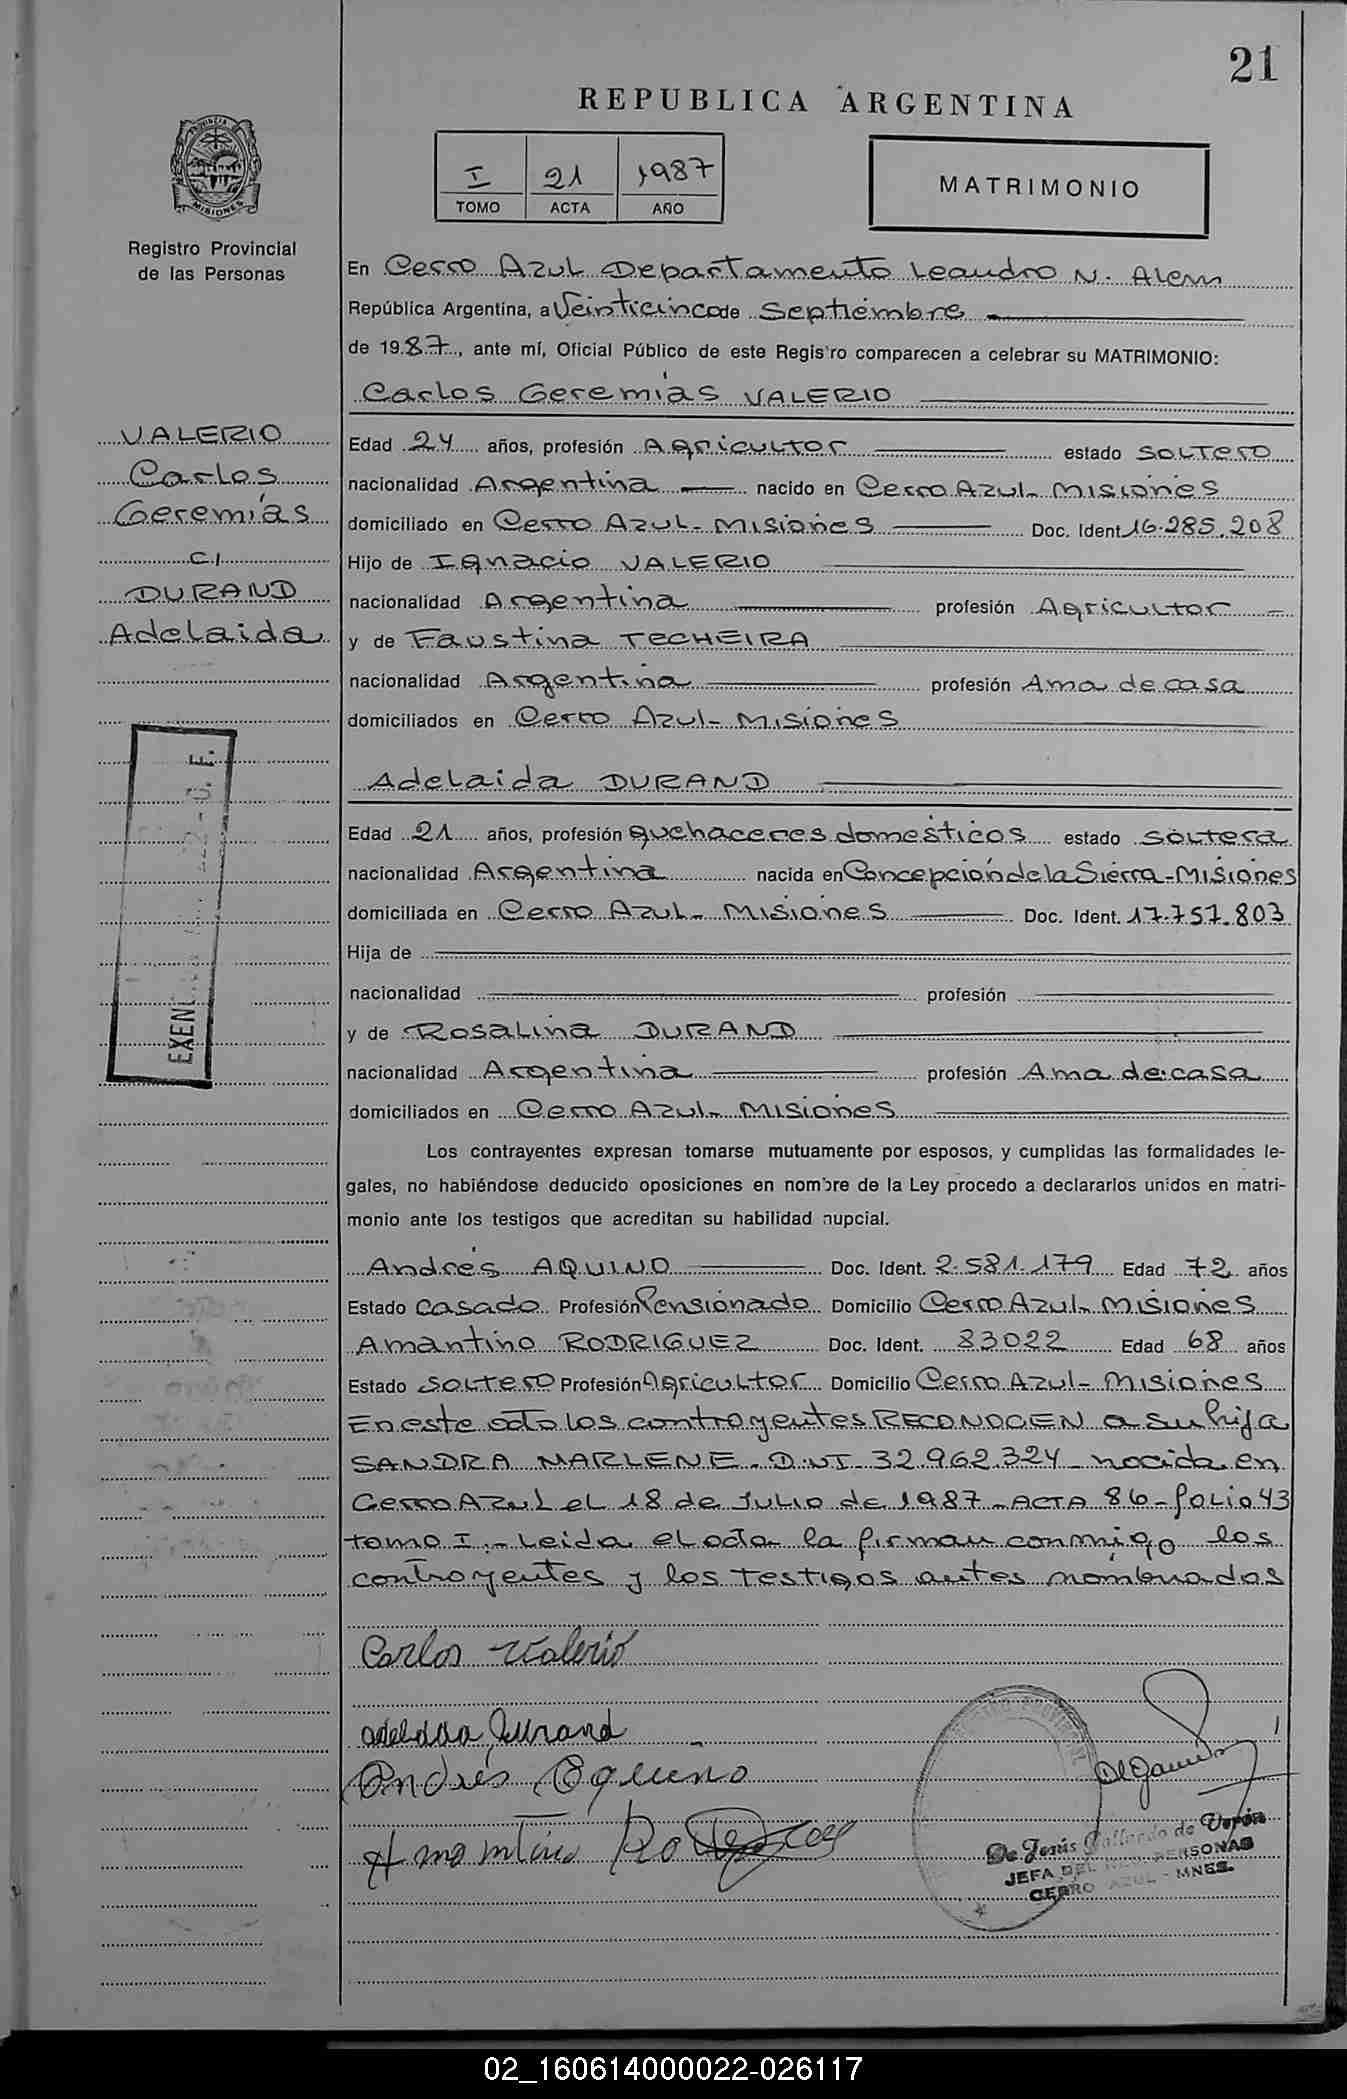 21
REPUBLICA ARGENTINA
I 21 1987
TOMO ACTA AÑO
MATRIMONIO
PROVINCIA
MISIONES
Registro Provincial
de las Personas
En Cerro Azul Departamento Leandro N. Alem
República Argentina, a Veinticinco de Septiembre
de 1987, ante mí, Oficial Público de este Registro comparecen a celebrar su MATRIMONIO:
Carlos Geremías VALERIO
VALERIO
Carlos
Geremías
c/
DURAND
Adelaida
Edad 24 años, profesión Agricultor estado soltero
nacionalidad Argentina nacido en Cerro Azul - Misiones
domiciliado en Cerro Azul - Misiones Doc. Ident. 16.285.208
Hijo de Ignacio VALERIO
nacionalidad Argentina profesión Agricultor
y de Faustina TECHEIRA
nacionalidad Argentina profesión Ama de casa
domiciliados en Cerro Azul - Misiones
Adelaida DURAND
Edad 21 años, profesión quehaceres domésticos estado soltera
nacionalidad Argentina nacida en Concepción de la Sierra - Misiones
domiciliada en Cerro Azul - Misiones Doc. Ident. 17.757.803
Hija de
nacionalidad profesión
y de Rosalina DURAND
nacionalidad Argentina profesión Ama de casa
domiciliados en Cerro Azul - Misiones
Los contrayentes expresan tomarse mutuamente por esposos, y cumplidas las formalidades le-
gales, no habiéndose deducido oposiciones en nombre de la Ley procedo a declararlos unidos en matri-
monio ante los testigos que acreditan su habilidad nupcial.
Andrés AQUINO Doc. Ident. 2.581.179 Edad 72 años
Estado casado Profesión Pensionado Domicilio Cerro Azul - Misiones
Amantino RODRIGUEZ Doc. Ident. 83022 Edad 68 años
Estado soltero Profesión Agricultor Domicilio Cerro Azul - Misiones
En este acto los contrayentes RECONOCEN a su hija
SANDRA MARLENE - D.N.I. 32.962.324 - nacida en
Cerro Azul el 18 de Julio de 1987 - ACTA 86 - folio 43
tomo I. - Leída el acta la firman conmigo los
contrayentes y los testigos antes nombrados
Carlos Valerio
Adelaida Durand
Andrés Aquino
Amantino
De Jesús Gallardo de Verón
JEFA DEL REG. PERSONAS
CERRO AZUL - MNES.
02_160614000022-026117